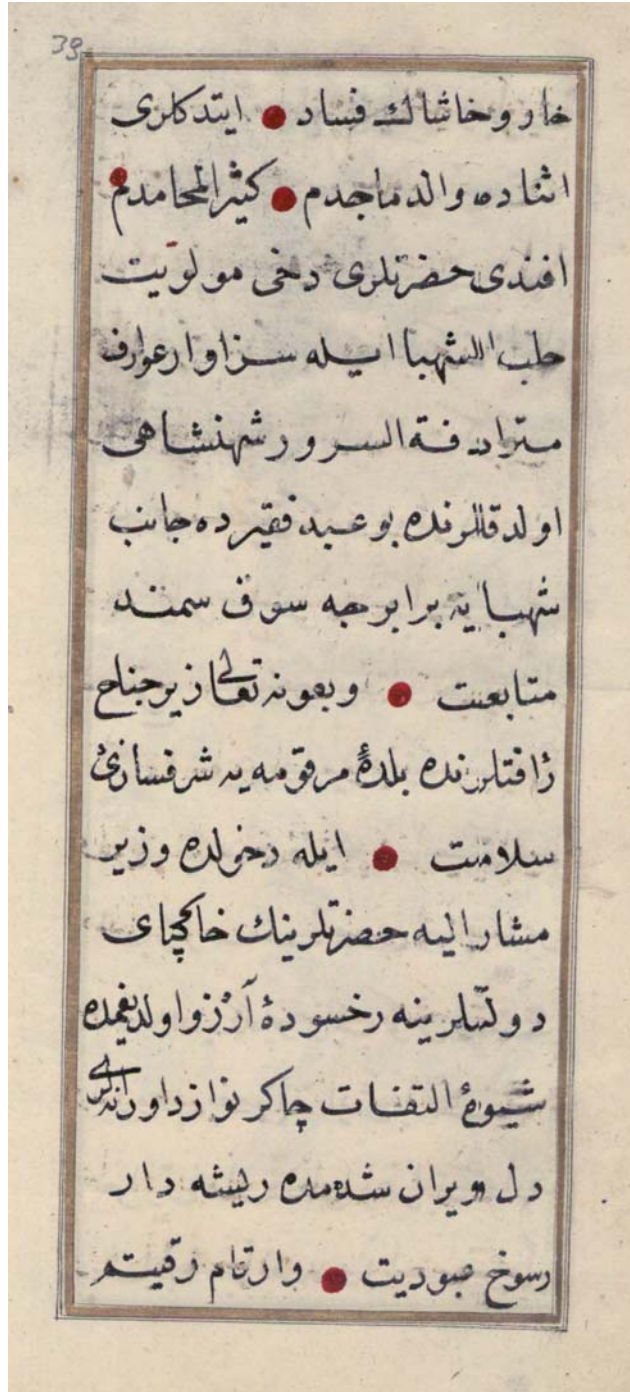 39
خار و خاشاك فساد ● ايتدكلرى
اثناده والد ماجدم ● كثير المحامدم
افندى حضرتلرى دخى مولويت
حلب الشهبا ايله سزاوار عوارف
مترادفة السرور شهنشاهى
اولدقلرنده بو عبد فقيرده جانب
شهبايه برابرجه سوق سمند
متابعت ● وبعونه تعالى زير جناح
رٔافتلرنده بلدهٔ مرقومه يه شرفسازئ
سلامت ● ايله دخولده وزير
مشار اليه حضرتلرينك خاكپاى
دولتلرينه رخسودهٔ آرزو اولديغمده
شيوهٔ التفات چاكر نواز داورانه‌لرى
دل ويران شده مده ريشه دار
رسوخ عبوديت ● وارتام رقيتم